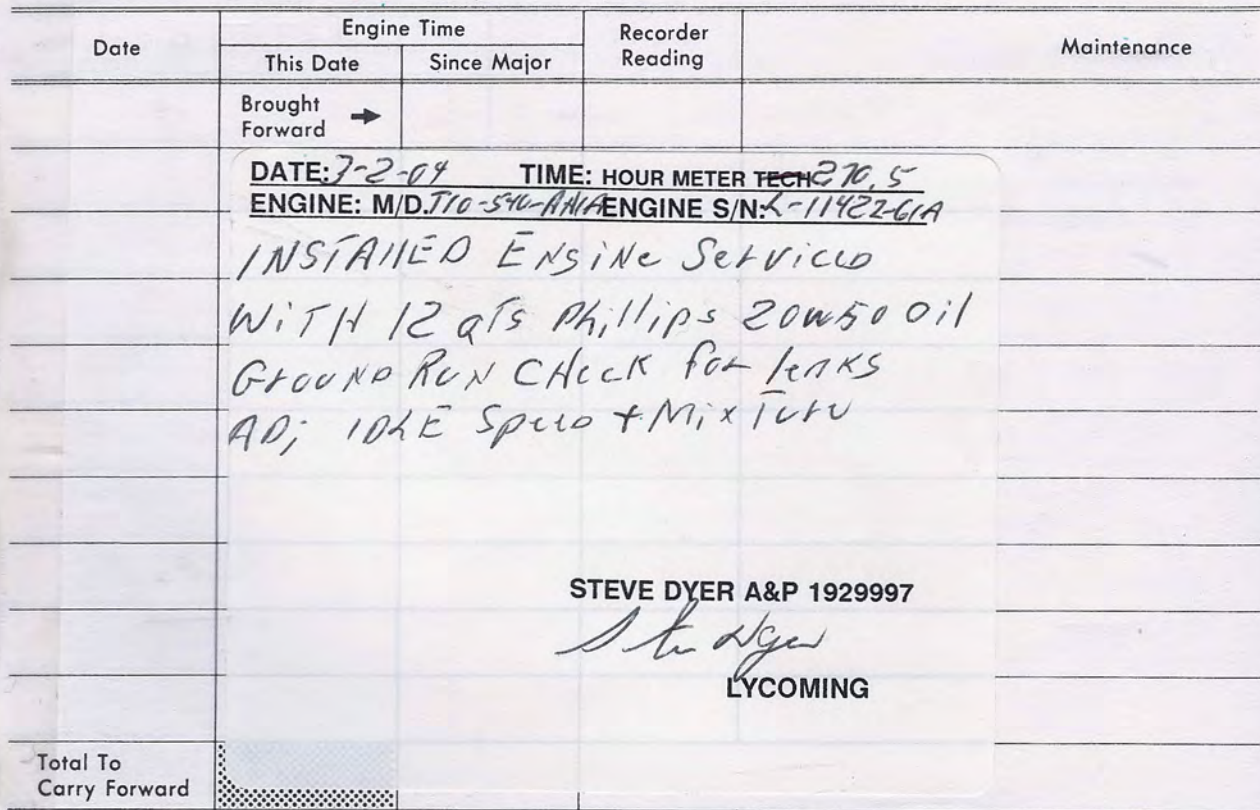 Date
Engine Time
This Date
Since Major
Recorder
Reading
Maintenance
Brought
Forward
DATE: 3-2-04 TIME: HOUR METER TECH 270.5
ENGINE: M/D. TIO-540-AH1A ENGINE S/N: L-11422-61A
INSTAllED ENgiNe Serviced
WiTH 12 qTs Phillips 20w50 Oil
GrouND RUN CHeck for leaks
ADj IDLE Speed + MixTure
STEVE DYER A&P 1929997
Steve Dyer
LYCOMING
Total To
Carry Forward